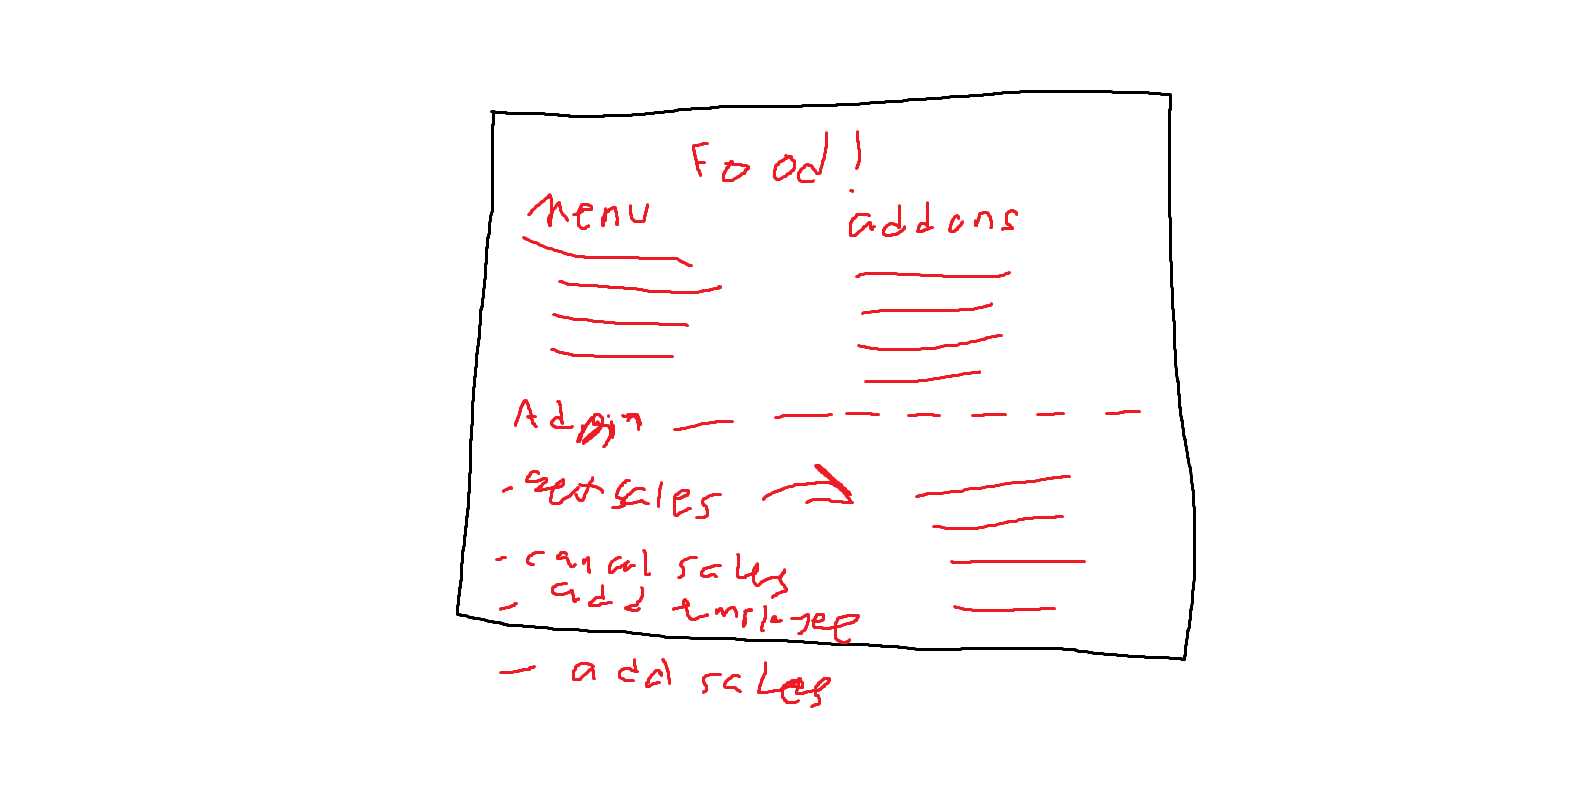 Food!
Menu
addons
Admin
- get sales
- cancel sales
- add employee
- add sales